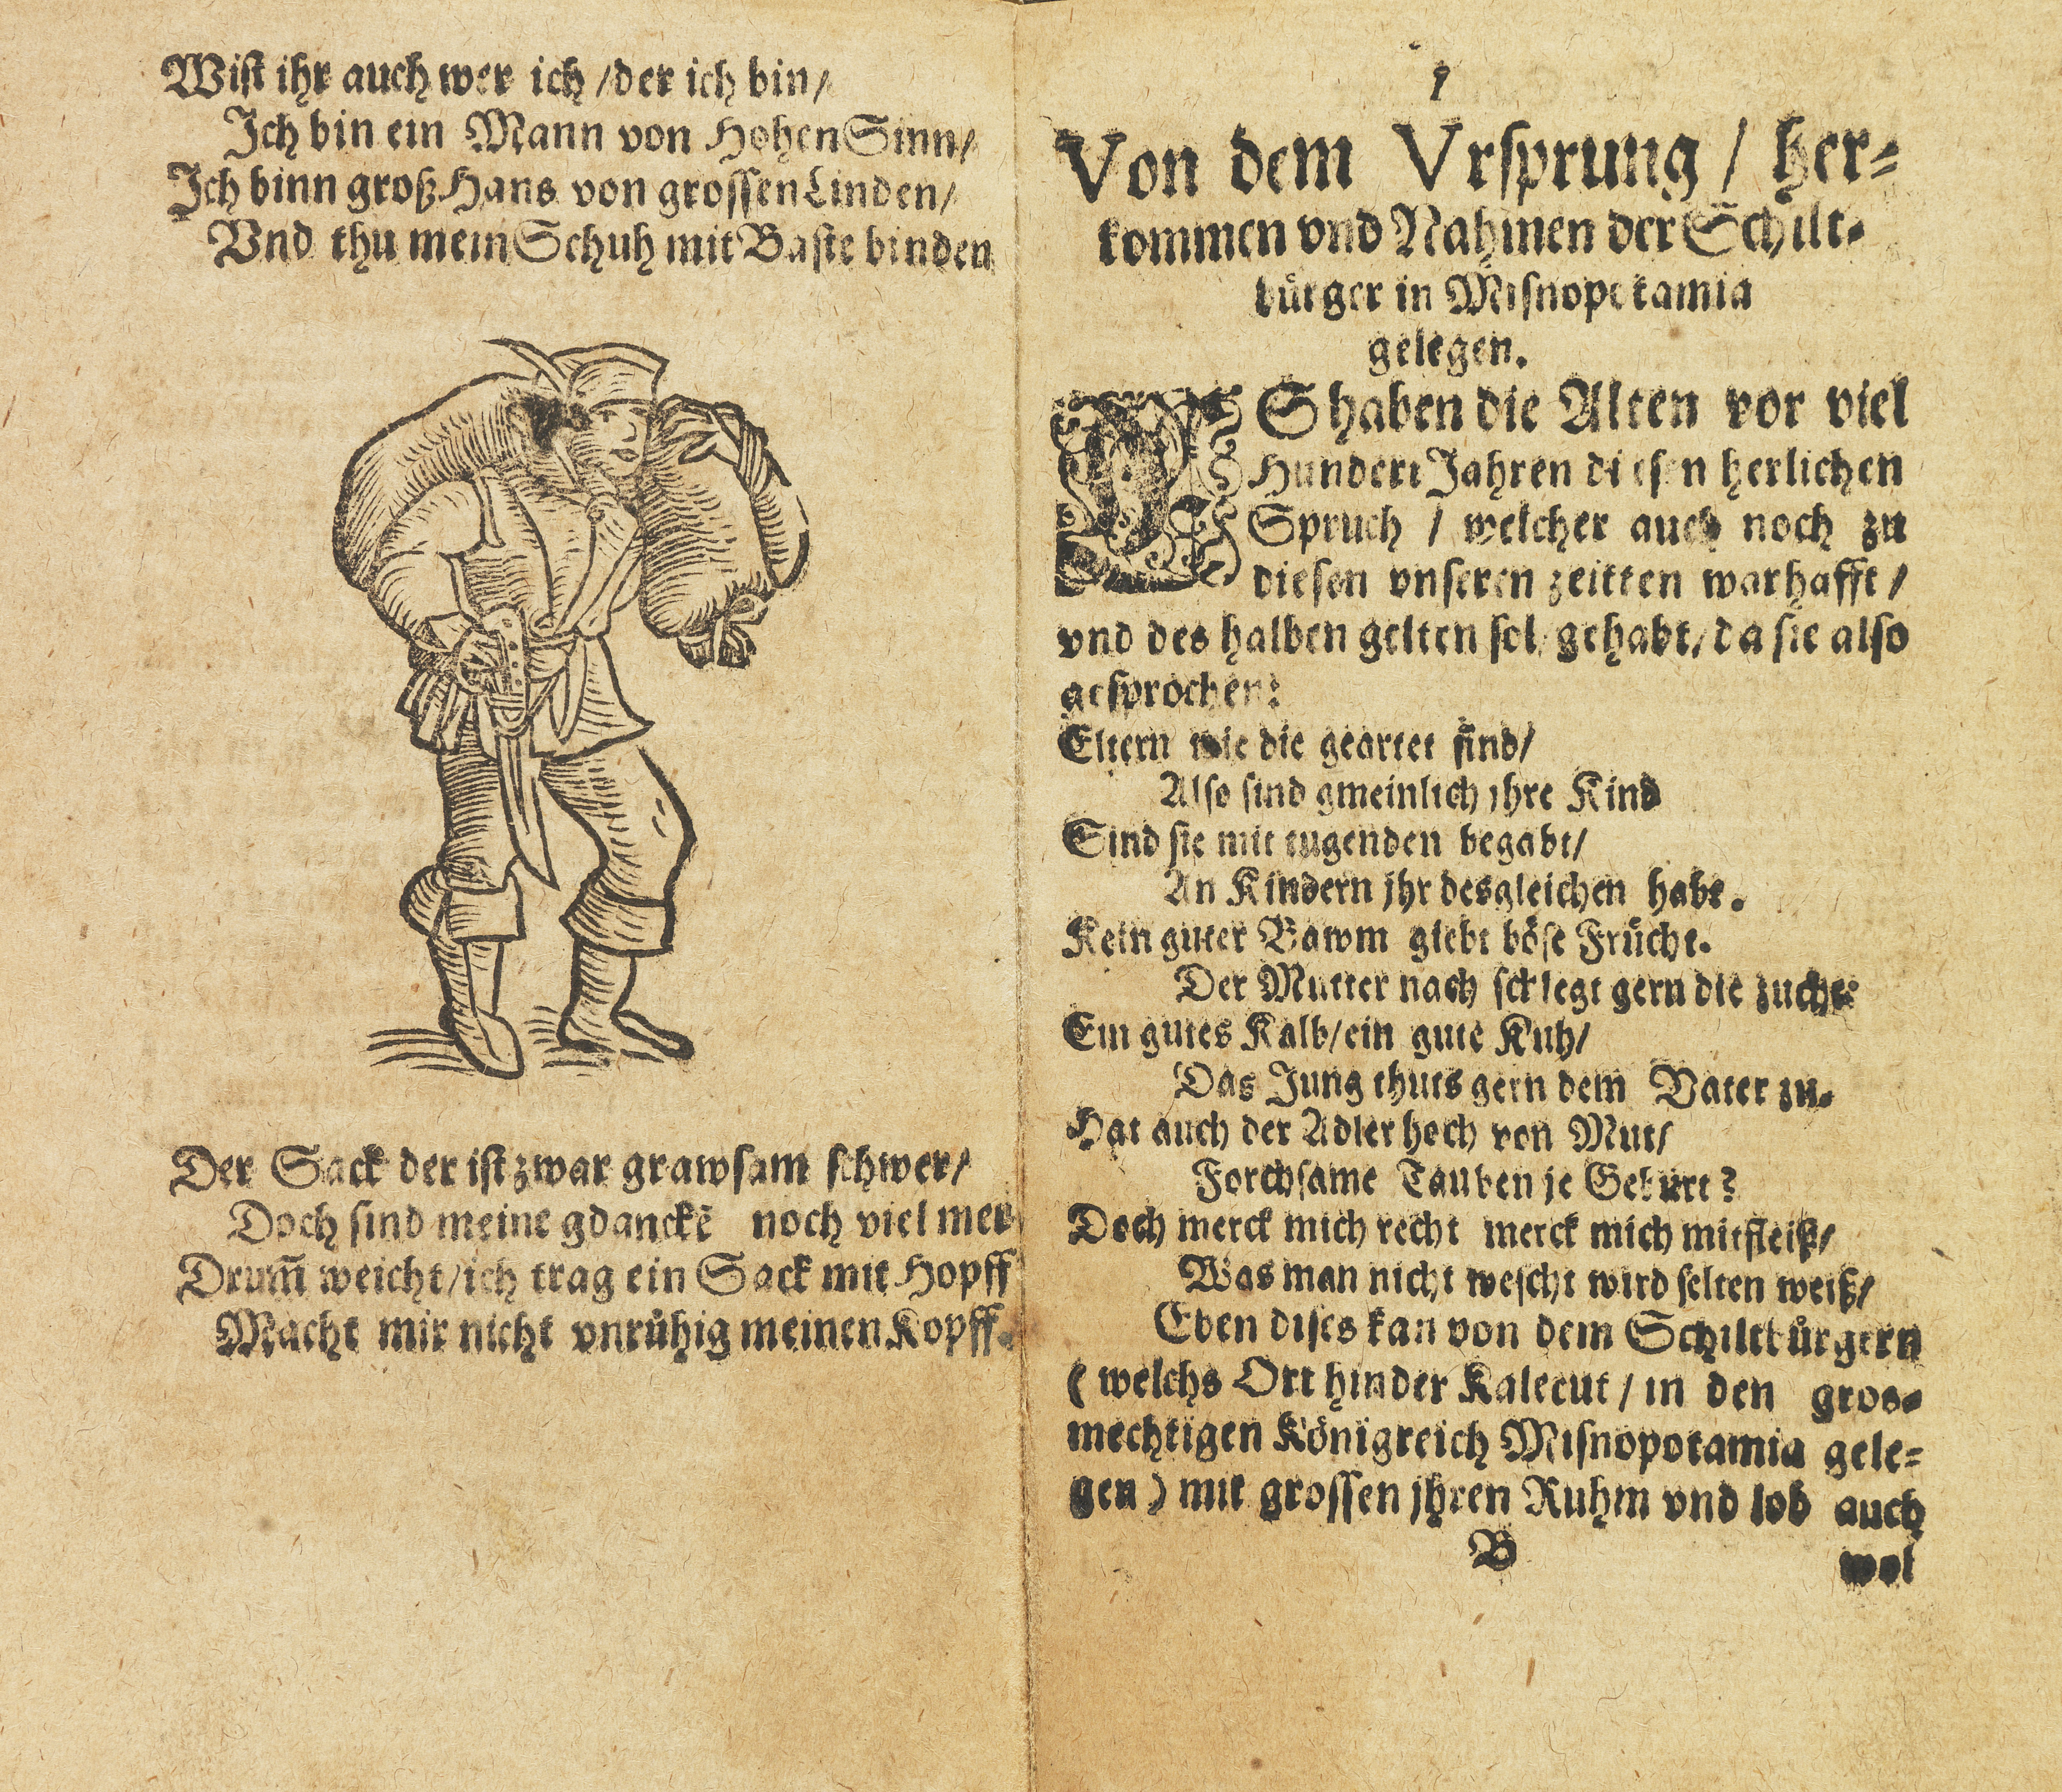 Wist ihr auch wer ich / der ich bin /
Ich bin ein Mann von Hohen Sinn /
Ich binn groß Hans von grossen Linden /
Vnd thu mein Schuh mit Baste binden
Der Sack der ist zwar grawsam schwer /
Doch sind meine gdanckẽ noch viel mer
Drum̃ weicht / ich trag ein Sack mit Hopff
Macht mir nicht vnrühig meinen Kopff.
Von dem Vrsprung / her-
kommen vnd Nahmen der Schilt-
bürger in Misnopotamia
gelegen.
ES haben die Alten vor viel
Hundert Jahren diesen herlichen
Spruch / welcher auch noch zu
diesen vnseren zeitten warhafft /
vnd des halben gelten sol / gehabt / da sie also
gesprochen:
Eltern wie die geartet sind /
Also sind gmeinlich jhre Kind
Sind sie mit tugenden begabt /
An Kindern jhr desgleichen habt.
Kein guter Bawm giebt böse Frücht.
Der Mutter nach schlegt gern die zucht:
Ein gutes Kalb / ein gute Kuh /
Das Jung thuts gern dem Vater zu.
Hat auch der Adler hoch von Mut /
Forchsame Tauben je Geburt?
Doch merck mich recht merck mich mit fleiß /
Was man nicht wescht wird selten weiß /
Eben dises kan von dem Schiltbürgern
( welchs Ort hinder Kalecut / in den gros-
mechtigen Königreich Misnopotamia gele-
gen ) mit grossen jhren Ruhm vnd lob auch
B
wol